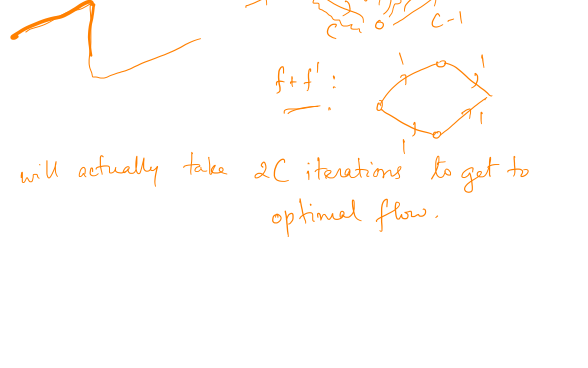 C C-1
f+f' :
1 1
1 1
will actually take 2C iterations to get to
optimal flow.